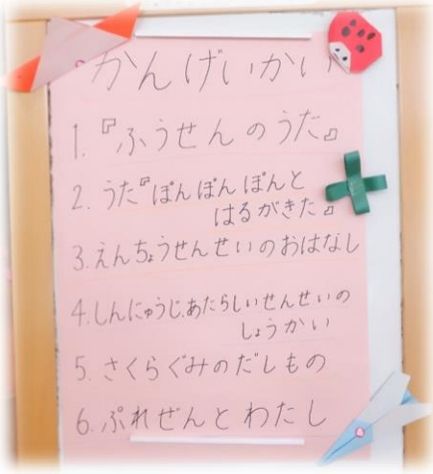 かんげいかい
1.『ふうせんのうた』
2.うた『ぽんぽんぽんと
はるがきた』
3.えんちょうせんせいのおはなし
4.しんにゅうじ、あたらしいせんせいの
しょうかい
5.さくらぐみのだしもの
6.ぷれぜんとわたし